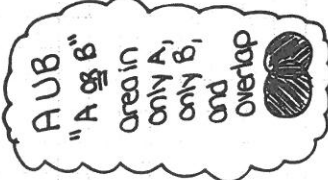 A U B
"A or B"
area in
only A,
only B,
and
overlap